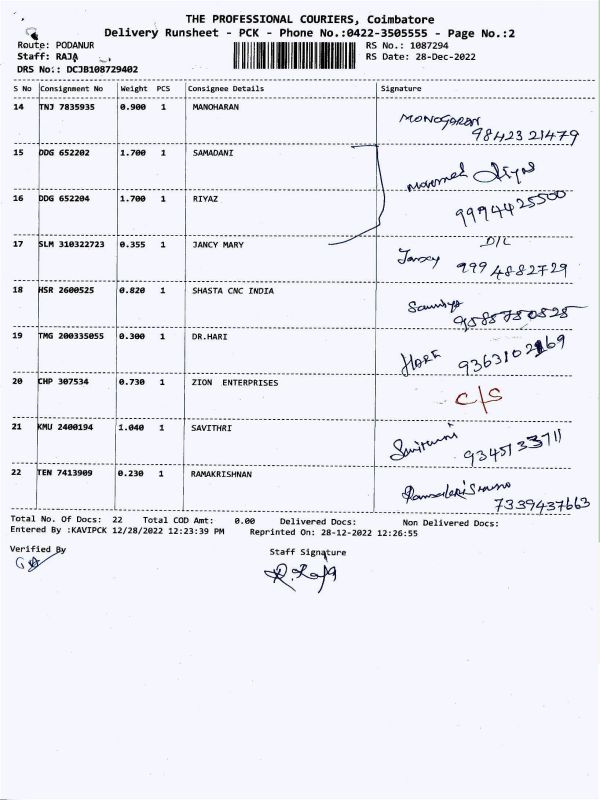 THE PROFESSIONAL COURIERS, Coimbatore
Delivery Runsheet - PCK - Phone No.:0422-3505555 - Page No.:2
Route: PODANUR
RS No.: 1087294
Staff: RAJA
RS Date: 28-Dec-2022
DRS No.: DCJB108729402
S No Consignment No Weight PCS Consignee Details Signature
14 TNJ 7835935 0.900 1 MANOHARAN
MONOGARAN
98423 21479
15 DDG 652202 1.700 1 SAMADANI
16 DDG 652204 1.700 1 RIYAZ
9994425500
D/L
17 SLM 310322723 0.355 1 JANCY MARY
Jancy 999 4882729
18 HSR 2600525 0.820 1 SHASTA CNC INDIA
9585750525
19 TMG 200335055 0.300 1 DR.HARI
HARI 9363102169
20 CHP 307534 0.730 1 ZION ENTERPRISES
C/S
21 KMU 2400194 1.040 1 SAVITHRI
9345133711
22 TEN 7413909 0.230 1 RAMAKRISHNAN
7339437663
Total No. Of Docs: 22 Total COD Amt: 0.00 Delivered Docs: Non Delivered Docs:
Entered By :KAVIPCK 12/28/2022 12:23:39 PM Reprinted On: 28-12-2022 12:26:55
Verified By
Staff Signature
R. Raja